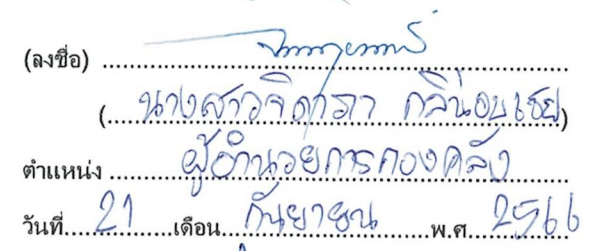 (ลงชื่อ)
(นางสาวจิดาภา กลิ่นอบเชย)
ตำแหน่ง ผู้อำนวยการกองคลัง
วันที่ 21 เดือน กันยายน พ.ศ. 2566